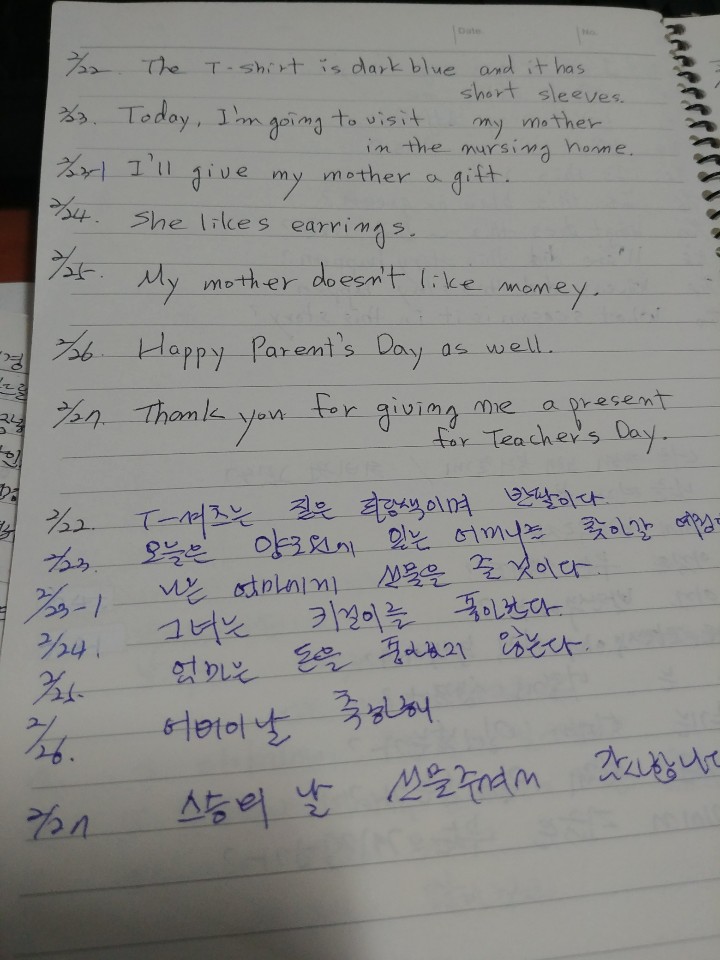 Date. No.
2/22. The T-shirt is dark blue and it has
short sleeves.
2/23. Today, I'm going to visit my mother
in the nursing home.
2/23-1 I'll give my mother a gift.
2/24. She likes earrings.
2/25. My mother doesn't like money.
2/26. Happy Parent's Day as well.
2/27. Thank you for giving me a present
for Teacher's Day.
2/22. T-셔츠는 짙은 파랑색이며 반팔이다.
2/23. 오늘은 양로원에 있는 어머니를 찾아갈
2/23-1 나는 엄마에게 선물을 줄 것이다.
2/24. 그녀는 귀걸이를 좋아한다.
2/25. 엄마는 돈을 좋아하지 않는다.
2/26. 어버이날 축하해
2/27 스승의 날 선물주셔서 감사합니다